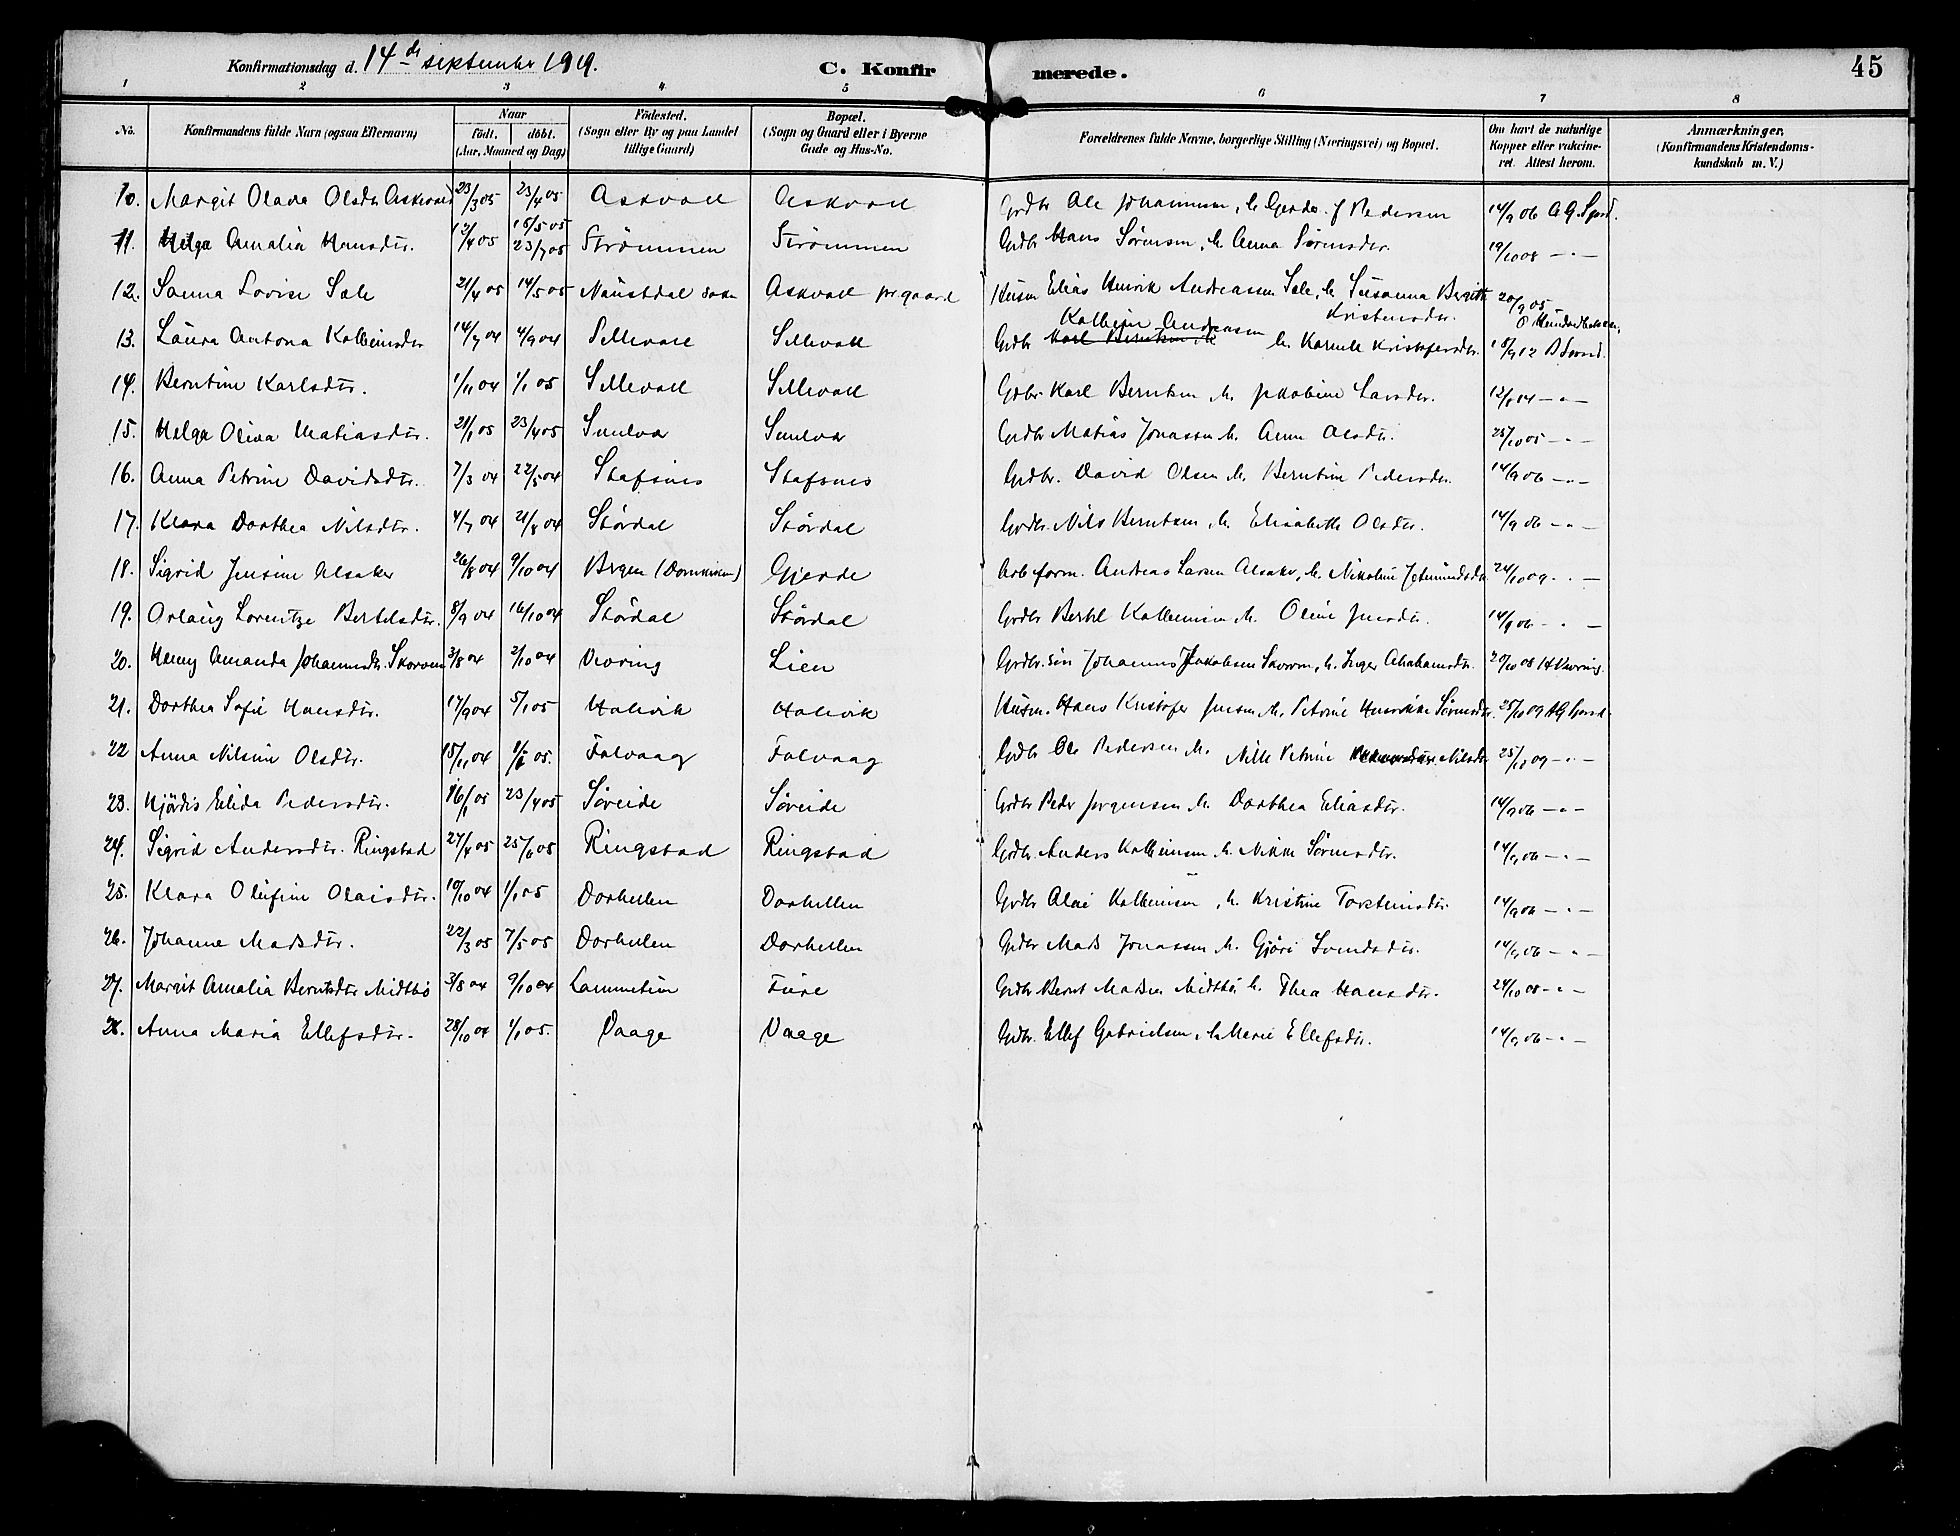 Konfirmationsdag d. 14de september 1919. C. Konfir merede. 45
1 2 3 4. 5 6 7 8
No. Konfirmandens fulde Navn (ogsaa Efternavn) Naar født. døbt. (Aar, Maaned og Dag) Fødested. (Sogn eller By og paa Landet tillige Gaard) Bopæl. (Sogn og Gaard eller i Byerne Gade og Hus-No. Forældrenes fulde Navne, borgerlige Stilling (Næringsvei) og Bopæl. Om havt de naturlige Kopper eller vakcineret. Attest herom. Anmærkninger, (Konfirmandens Kristendomskundskab m. V.)
10. Margit Olava Olsdtr Askvold 23/3 05 23/4 05 Askvoll Askvoll Grdbr Ole Johannesen, h. Gjerdr. f Pedersen 14/9 06
11. Helga Amalia Hansdtr. 12/4 05 16/5 05 23/7 05 Strømmen Strømmen Grdbr Hans Sørensen, h. Anna Sørensdtr. 19/10 08 — " —
12. Sanna Lovise Sale 21/4 05 14/5 05 Naustdal sokn Askvoll pr.gaard Husm Elias Henrik Andreassen Sale, h. Susanna Bergitte Kristensdtr. 20/9 05
13. Laura Antona Kolbeinsdtr 14/7 04 4/9 04 Sellevoll Sellevoll Grdbr Karl Berntsen h. Kolbein Andreasen h. Karnelle Kristofersdtr. 18/9 12
14. Berntine Karlsdtr. 1/11 04 1/1 05 Sellevoll Sellevoll Grdbr. Karl Berntsen h. Jakobine Larsdtr. — " —
15. Helga Oliva Matiasdtr. 21/1 05 23/4 05 Smelvær Smelvær Grdbr Matias Jonassen h. Anna Olsdtr. 25/10 05 — " —
16. Anna Petrine Davidsdtr. 7/3 04 22/5 04 Stafsnes Stafsnes Grdbr. David Olsen h. Berntine Pedersdtr. 14/9 06 — " —
17. Klara Dorthea Nilsdtr. 4/7 04 21/8 04 Størdal Størdal Grdbr. Nils Berntsen, h. Elisabeth Olsdtr. 14/9 06 — " —
18. Sigrid Jensine Alsaker 26/8 04 9/10 04 Bergen (Domkirken) Gjerde Arb.form. Andreas Larsen Alsaker, h. Nikoline 24/10 09 — " —
19. Orlaug Lorentze Bertelsdtr. 8/9 04 16/10 04 Størdal Størdal Grdbr Bertel Kolbeinsen h. Oline Jensdtr. 14/9 06 — " —
20. Henny Amanda Johannesdtr. Skorven 3/8 04 2/10 04 Vevring Lien Grdbr.søn Johannes Jakobsen Skorven, h. Inger Abrahamsdtr. 20/10 08 H Vevring.
21. Dorthea Sofie Hansdtr. 17/9 04 5/1 05 Holevik Holevik Husm. Hans Kristofer Jensen h. Petrine Henrikke Sørensdtr. 25/10 09
22 Anna Nilsine Olsdtr. 15/11 04 1/1 05. Folvaag Folvaag Grdbr Ole Pedersen h. Nille Petrine Nilsdtr 25/10 09 — " —
23. Hjørdis Elida Pedersdtr. 16/1 05 23/4 05 Søreide Søreide Grdbr Peder Jørgensen h. Dorthea Eliasdtr. 14/9 06 — " —
24. Sigrid Andersdtr. Ringstad 27/4 05 25/6 05 Ringstad Ringstad Grdbr. Anders Kolbeinsen h. Nikka Sørensdtr. 14/9 06 — " —
25. Klara Olufine Olaisdtr. 10/10 04 1/1 05 Dorhellen Dorhellen Grdbr Olai Kolbeinsen, h. Kristine Torsteinsdtr. 14/9 06 — " —
26. Johanne Madsdtr. 22/3 05 7/5 05 Dorhellen Dorhellen Grdbr Mads Jonassen h. Gjøri Svendsdtr. 14/9 06 — " —
27. Margit Amalia Berntsdtr Midtbø 3/8 04 9/10 04 Lammetun Fure Grdbr Bernt Madsen Midtbø h. Thea Hansdtr. 24/10 08 — " —
28. Anna Maria Ellefsdtr. 28/10 04 1/1 05. Vaage Vaage Grdbr. Ellef Gabrielsen, h Marie Ellefsdtr. 14/9 06 — " —